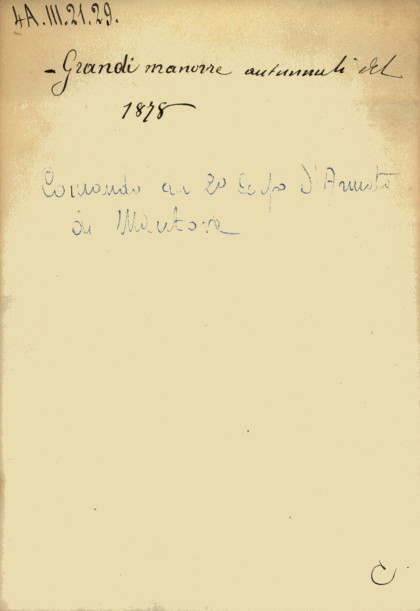 4A.III.21.29.
- Grandi manovre autunnali del
1878
Comando di 2o Corpo d'Armata
di Mantova
C